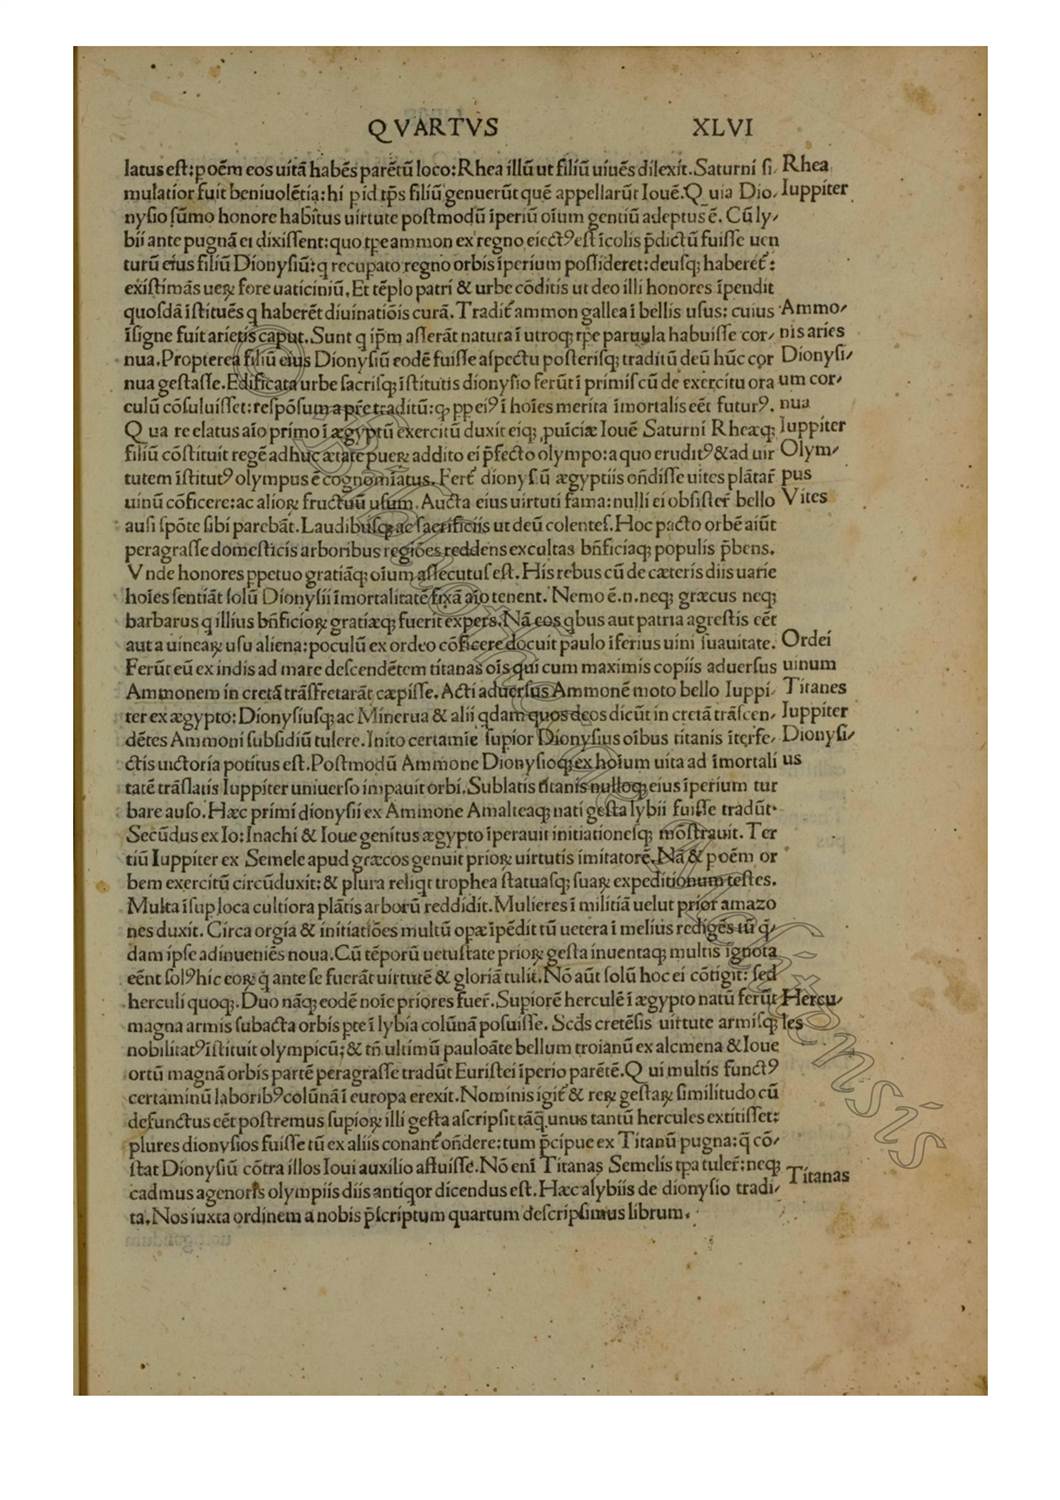 QVARTVS XLVI
latus est: poẽm eos uitã habẽs parẽtũ loco: Rhea illũ ut filiũ uiuẽs dilexit. Saturni si/ Rhea
mulatior fuit beniuolẽtia: hi ꝑid tp̃s filiũ genuerũt quẽ appellarũt Iouẽ. Quia Dio/ Iuppiter
nysio sũmo honore habitus uirtute postmodũ ĩperiũ oĩum gentiũ adeptus ẽ. Cũ ly/
bii ante pugnã ei dixissent: quo tp̃e ammon ex regno eiectꝰ est ĩcolis p̃dictũ fuisse uen
turũ eius filiũ Dionysiũ: q recupato regno orbis ĩperium possideret: deusq; haberet̃:
existimãs ueꝝ fore uaticiniũ. Et tẽplo patri & urbe cõditis ut deo illi honores ĩpendit
quosdã ĩstituẽs q haberẽt diuinatiõis curã. Tradit̃ ammon gallea ĩ bellis usus: cuius Ammo/
ĩsigne fuit arietis caput. Sunt q ip̃m asserãt natura ĩ utroq; tp̃e paruula habuisse cor/ nis aries
nua. Propterea filiũ eius Dionysiũ eodẽ fuisse aspectu posterisq; traditũ deũ hũc cor Dionysi/
nua gestasse. Edificata urbe sacrisq; ĩstitutis dionysio ferũt ĩ primis cũ de exercitu ora um cor/
culũ cõsuluisset: respõsum a pr̃e traditũ: q̃ ꝓp eiꝰ ĩ hoĩes merita ĩmortalis eẽt futurꝰ. nua
Qua re elatus aĩo primo ĩ ægyptũ exercitũ duxit eiq; ꝓuĩciæ Iouẽ Saturni Rheæq; Iuppiter
filiũ cõstituit regẽ adhuc ætate pueꝝ addito ei p̃fecto olympo: a quo eruditꝰ & ad uir Olym/
tutem ĩstitutꝰ olympus ẽ cognomĩatus. Fert̃ dionysiũ ægyptiis oñdisse uites plãtar̃ pus
uinũ cõficere: ac alioꝝ fructuũ usum. Aucta eius uirtuti fama: nulli ei obsister̃ bello Vites
ausi spõte sibi parebãt. Laudibusq; ac sacrificiis ut deũ colentes. Hoc pacto orbẽ aiũt
peragrasse domesticis arboribus regiões reddens excultas bñficiaq; populis p̃bens.
Vnde honores ꝑpetuo gratiãq; oĩum assecutus est. His rebus cũ de cæteris diis uarie
hoĩes sentiãt solũ Dionysii ĩmortalitatẽ fixã aĩo tenent. Nemo ẽ.n. neq; græcus neq;
barbarus q illius bñficioꝝ gratiæq; fuerit expers. Nã eos qbus aut patria agrestis eẽt
aut a uineaꝝ usu aliena: poculũ ex ordeo cõficere docuit paulo ĩferius uini suauitate. Ordei
Ferũt eũ ex indis ad mare descendẽtem titanas oĩs qui cum maximis copiis aduersus uinum
Ammonem in cretã trãsfretarãt cæpisse. Acti aduersus Ammonẽ moto bello Iuppi/ Titanes
ter ex ægypto: Dionysiusq; ac Minerua & alii qdam quos deos dicũt in cretã trãscen/ Iuppiter
dẽtes Ammoni subsidiũ tulere. Inito certamĩe supior Dionysius oĩbus titanis ĩterfe/ Dionysi/
ctis uictoria potitus est. Postmodũ Ammone Dionysioq; ex hoĩum uita ad ĩmortali us
tatẽ trãslatis Iuppiter uniuerso ĩpauit orbi. Sublatis titanis nulloq; eius ĩperium tur
bare auso. Hæc primi dionysii ex Ammone Amalteaq; nati gesta lybii fuisse tradũt.
Secũdus ex Io: Inachi & Ioue genitus ægypto ĩperauit initiationesq; mostrauit. Ter
tiũ Iuppiter ex Semele apud græcos genuit prioꝝ uirtutis imitatorẽ. Nã & poẽm or
bem exercitũ circũduxit: & plura reliqt trophea statuasq; suaꝝ expeditionum testes.
Multa ĩsup loca cultiora plãtis arborũ reddidit. Mulieres ĩ militiã uelut prior amazo
nes duxit. Circa orgia & initiatiões multũ opæ ĩpẽdit tũ uetera ĩ melius redigẽs tũ q̃/
dam ipse adinueniẽs noua. Cũ tẽporũ uetustate prioꝝ gesta inuentaq; multis ignota
eẽnt solꝰ hic eoꝝ q̃ ante se fuerãt uirtutẽ & gloriã tulit. Nõ aũt solũ hoc ei cõtigit: sed
herculi quoq;. Duo nãq; eodẽ noĩe priores fuer̃. Supiorẽ herculẽ ĩ ægypto natũ ferũt Hercu/
magna armis subacta orbis pte ĩ lybia colũnã posuisse. Scd̃s cretẽsis uirtute armisq; les
nobilitatꝰ ĩstituit olympicũ; & tñ ultimũ pauloãte bellum troianũ ex alcmena & Ioue
ortũ magnã orbis partẽ peragrasse tradũt Euristei ĩperio parẽtẽ. Qui multis functꝰ
certaminũ laboribꝰ colũnã ĩ europa erexit. Nominis igit̃ & reꝝ gestaꝝ similitudo cũ
defunctus eẽt postremus supioꝝ illi gesta ascripsit tãq̃ unus tantũ hercules extitisset:
plures dionysios fuisse tũ ex aliis conant̃ oñdere: tum p̃cipue ex Titanũ pugna: q̃ cõ/
stat Dionysiũ cõtra illos Ioui auxilio afuisse. Nõ eni Titanas Semelis tp̃a tuler̃: neq; Titanas
cadmus agenoris olympiis diis antiqor dicendus est. Hæc a lybiis de dionysio tradi/
ta. Nos iuxta ordinem a nobis p̃scriptum quartum descripsimus librum.